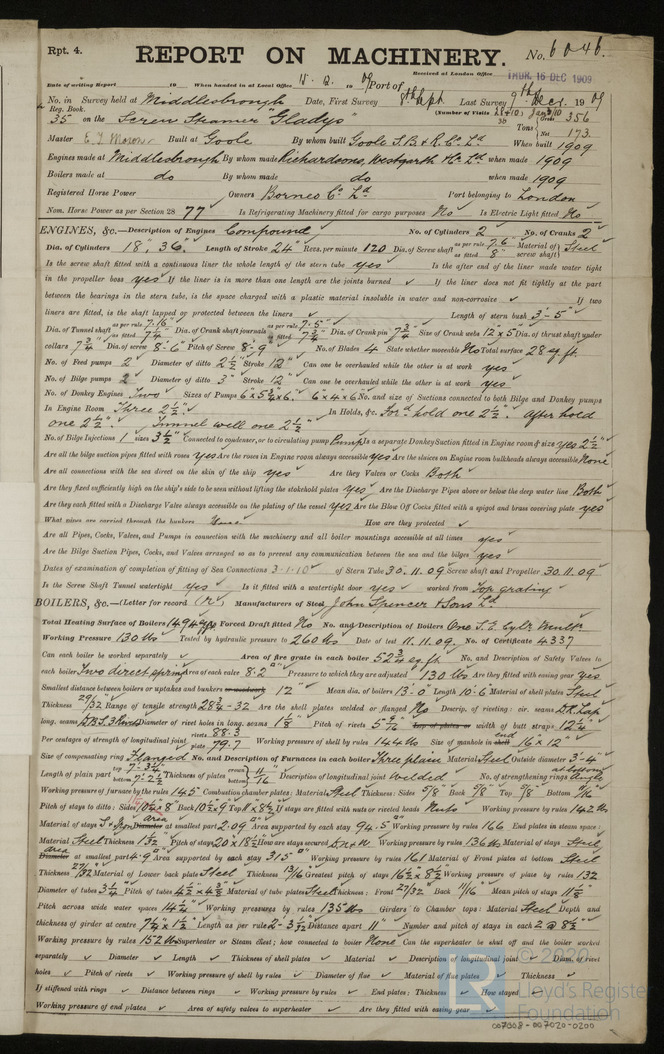 Rpt. 4.
REPORT ON MACHINERY.
No. 6046.
Received at London Office THUR. 16 DEC 1909
Date of writing Report 19 When handed in at Local Office 19 09 Port of
No. in Survey held at Middlesbrough Date, First Survey 8th Sept Last Survey 9th Decr. 1909
Reg. Book.
(Number of Visits 28+10)
35 on the Screw Steamer "Gladys" Tons { Gross 356
Net 173
Master E. J. Moron Built at Goole By whom built Goole S.B. & R. Co. Ld When built 1909
Engines made at Middlesbrough By whom made Richardsons, Westgarth & Co. Ld when made 1909
Boilers made at do By whom made do when made 1909
Registered Horse Power Owners Borneo Co. Ld Port belonging to London
Nom. Horse Power as per Section 28 77 Is Refrigerating Machinery fitted for cargo purposes No Is Electric Light fitted No
ENGINES, &c.—Description of Engines Compound No. of Cylinders 2 No. of Cranks 2
Dia. of Cylinders 18", 36" Length of Stroke 24" Revs. per minute 120 Dia. of Screw shaft as per rule 7.6 as fitted 8" Material of screw shaft Steel
Is the screw shaft fitted with a continuous liner the whole length of the stern tube yes Is the after end of the liner made water tight
in the propeller boss yes If the liner is in more than one length are the joints burned ✓ If the liner does not fit tightly at the part
between the bearings in the stern tube, is the space charged with a plastic material insoluble in water and non-corrosive ✓ If two
liners are fitted, is the shaft lapped or protected between the liners ✓ Length of stern bush 3'-5"
Dia. of Tunnel shaft as per rule 7.16 as fitted 7 1/4 Dia. of Crank shaft journals as per rule 7.5 as fitted 7 3/4 Dia. of Crank pin 7 3/4 Size of Crank webs 12 x 5 Dia. of thrust shaft under
collars 7 3/4 Dia. of screw 8'-6" Pitch of Screw 8'-9" No. of Blades 4 State whether moveable No Total surface 28 sq ft.
No. of Feed pumps 2 Diameter of ditto 2 1/2" Stroke 12" Can one be overhauled while the other is at work yes
No. of Bilge pumps 2 Diameter of ditto 3" Stroke 12" Can one be overhauled while the other is at work yes
No. of Donkey Engines Two Sizes of Pumps 6" x 5 3/4 x 6" 6" x 4 x 6 No. and size of Suctions connected to both Bilge and Donkey pumps
In Engine Room Three 2 1/2" In Holds, &c. Ford hold one 2 1/2". After hold
one 2 1/2". Tunnel well one 2 1/2"
No. of Bilge Injections 1 sizes 3 1/2" Connected to condenser, or to circulating pump Pump Is a separate Donkey Suction fitted in Engine room & size yes 2 1/2"
Are all the bilge suction pipes fitted with roses yes Are the roses in Engine room always accessible yes Are the sluices on Engine room bulkheads always accessible None
Are all connections with the sea direct on the skin of the ship yes Are they Valves or Cocks Both
Are they fixed sufficiently high on the ship's side to be seen without lifting the stokehold plates yes Are the Discharge Pipes above or below the deep water line Both
Are they each fitted with a Discharge Valve always accessible on the plating of the vessel yes Are the Blow Off Cocks fitted with a spigot and brass covering plate yes
What pipes are carried through the bunkers None How are they protected ✓
Are all Pipes, Cocks, Valves, and Pumps in connection with the machinery and all boiler mountings accessible at all times yes
Are the Bilge Suction Pipes, Cocks, and Valves arranged so as to prevent any communication between the sea and the bilges yes
Dates of examination of completion of fitting of Sea Connections 3-1-10 of Stern Tube 30.11.09 Screw shaft and Propeller 30.11.09
Is the Screw Shaft Tunnel watertight yes Is it fitted with a watertight door yes worked from Top grating
BOILERS, &c.—(Letter for record (r)) Manufacturers of Steel John Spencer & Sons Ld
Total Heating Surface of Boilers 1494 sq ft Forced Draft fitted No No. and Description of Boilers One S.E. Cylr Multr
Working Pressure 130 lbs Tested by hydraulic pressure to 260 lbs Date of test 11.11.09. No. of Certificate 4337
Can each boiler be worked separately ✓ Area of fire grate in each boiler 52 3/4 sq ft No. and Description of Safety Valves to
each boiler Two direct spring Area of each valve 8.2 Pressure to which they are adjusted 130 lbs Are they fitted with easing gear yes
Smallest distance between boilers or uptakes and bunkers or woodwork 12" Mean dia. of boilers 13'-0" Length 10'-6" Material of shell plates Steel
Thickness 29/32 Range of tensile strength 28 3/4-32 Are the shell plates welded or flanged No Descrip. of riveting: cir. seams D.R. Lap
long. seams D.B.S. 3 Rivets Diameter of rivet holes in long. seams 1 1/8" Pitch of rivets 5 9/32 Lap of plates or width of butt straps 12 1/4"
Per centages of strength of longitudinal joint rivets 88.3 plate 79.7 Working pressure of shell by rules 144 lbs Size of manhole in end 16" x 12"
Size of compensating ring Flanged No. and Description of Furnaces in each boiler Three plain Material Steel Outside diameter 3'-4"
Length of plain part top 7'-3 1/2" bottom 7'-2 1/2" Thickness of plates crown bottom 11/16 Description of longitudinal joint Welded No. of strengthening rings
Working pressure of furnace by the rules 145 Combustion chamber plates: Material Steel Thickness: Sides 5/8" Back 5/8" Top 5/8" Bottom 9/16"
Pitch of stays to ditto: Sides 10 1/2 x 8" Back 10 1/2 x 9 Top 11 x 8 1/2 If stays are fitted with nuts or riveted heads Nuts Working pressure by rules 142 lbs
Material of stays S. & Iron Diameter area at smallest part 2.09 Area supported by each stay 94.5 Working pressure by rules 166 End plates in steam space:
Material Steel Thickness Pitch of stays 20 x 18 1/2 How are stays secured D.n.&w. Working pressure by rules 136 lbs Material of stays Steel
Diameter area at smallest part 4.9 Area supported by each stay 315 Working pressure by rules 161 Material of Front plates at bottom Steel
Thickness 27/32 Material of Lower back plate Steel Thickness 13/16 Greatest pitch of stays 16 1/2 x 8 1/2 Working pressure of plate by rules 132
Diameter of tubes 3 1/4" Pitch of tubes 4 1/2 x 4 3/8 Material of tube plates Steel Thickness: Front 27/32 Back 11/16" Mean pitch of stays 11 1/8"
Pitch across wide water spaces 14 1/4 Working pressures by rules 135 lbs Girders to Chamber tops: Material Steel Depth and
thickness of girder at centre 7 1/4 x 1 1/2 Length as per rule 2'-3 1/2 Distance apart 11" Number and pitch of stays in each 2 @ 8 1/2
Working pressure by rules 152 lbs Superheater or Steam chest; how connected to boiler None Can the superheater be shut off and the boiler worked
separately ✓ Diameter ✓ Length ✓ Thickness of shell plates ✓ Material ✓ Description of longitudinal joint ✓ Diam. of rivet
holes ✓ Pitch of rivets ✓ Working pressure of shell by rules ✓ Diameter of flue ✓ Material of flue plates ✓ Thickness ✓
If stiffened with rings ✓ Distance between rings ✓ Working pressure by rules ✓ End plates: Thickness ✓ How stayed
Working pressure of end plates ✓ Area of safety valves to superheater ✓ Are they fitted with easing gear ✓
© 2020
Lloyd's Register
Foundation
007008-007020-0200